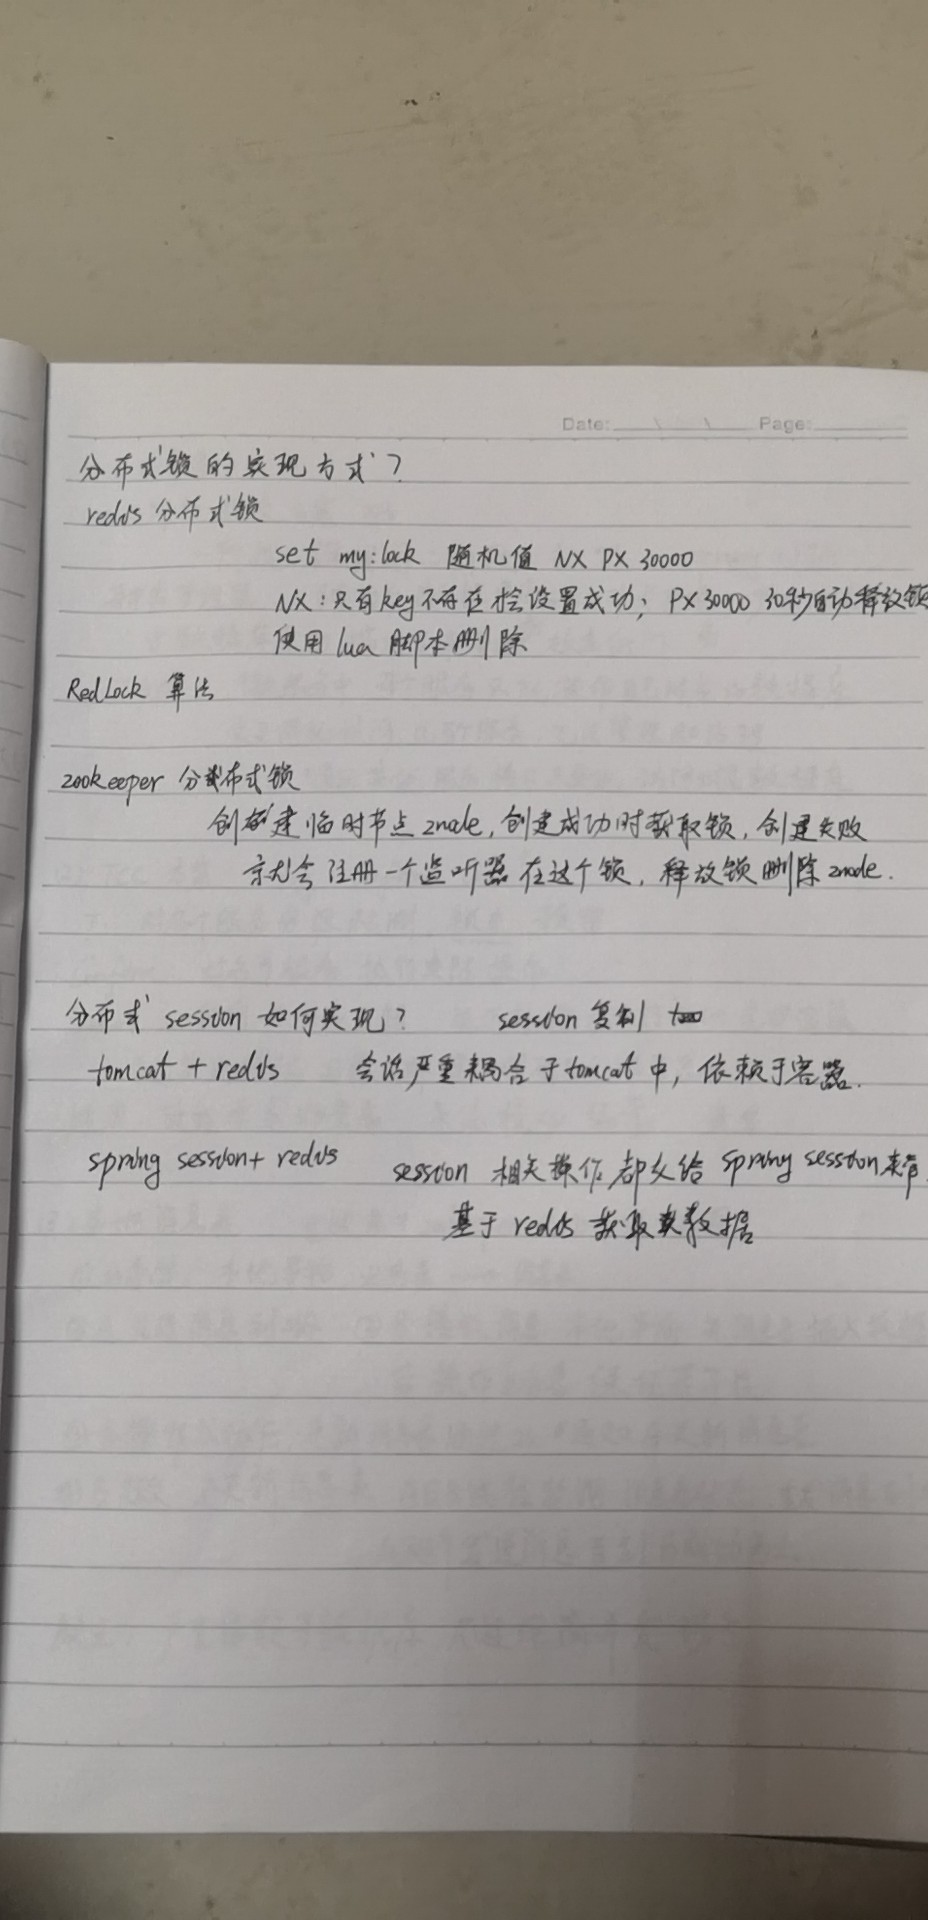 Date: Page:
分布式锁的实现方式？
redis 分布式锁
set my:lock 随机值 NX PX 30000
NX：只有key不存在才会设置成功；PX 30000 30秒自动释放锁
使用 lua 脚本删除
RedLock 算法
zookeeper 分布式锁
创建临时节点 znode，创建成功时获取锁，创建失败
就会注册一个监听器在这个锁，释放锁删除znode.
分布式 session 如何实现？ session 复制
tomcat + redis 会话严重耦合于tomcat 中，依赖于容器.
spring session + redis session 相关操作都交给 spring session 来管
基于 redis 获取数据